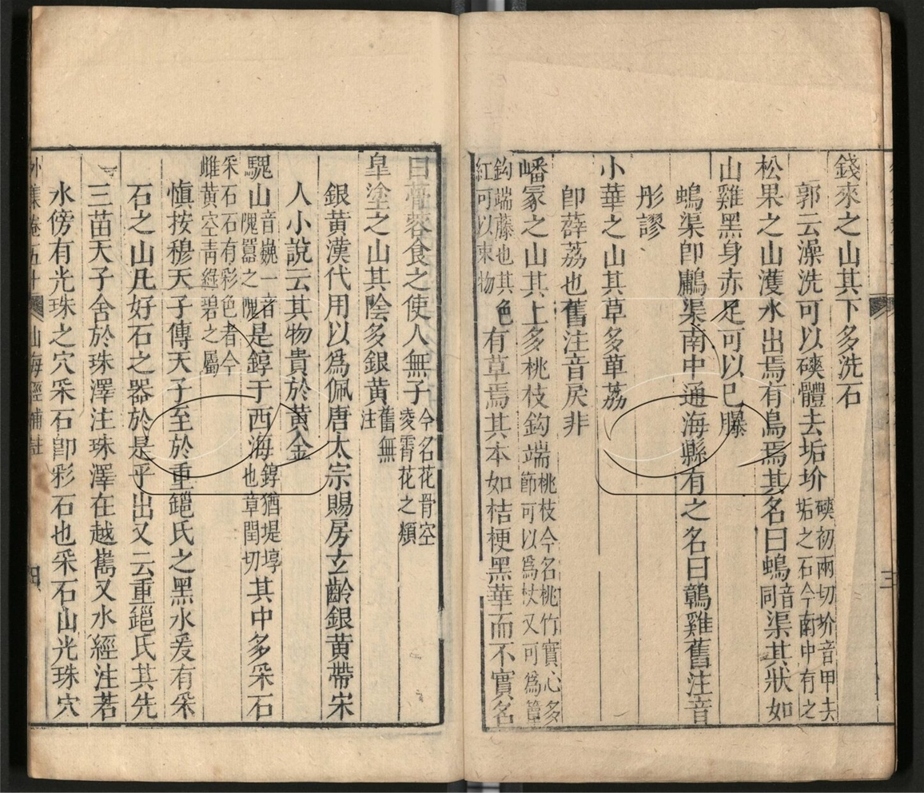 錢來之山其下多洗石
郭云澡洗可以磢體去垢圿磢初兩切圿音甲去垢之石今南中有之
松果之山濩水出焉有鳥焉其名曰䳋音同渠其狀如
山雞黑身赤足可以已𦢊
䳋渠卽鸍渠南中通海縣有之名曰䳺雞舊注音
彤謬
小華之山其草多萆荔
卽薜荔也舊注音戾非
嶓冢之山其上多桃枝鈎端桃枝今名桃竹實心多節可以爲杖又可爲簟鈎端藤也其紅可以束物
色有草焉其本如桔梗黑華而不實名
曰蓇蓉食之使人無子今名花骨空凌霄花之類
皐塗之山其陰多銀黃舊無注
銀黃漢代用以爲佩唐太宗賜房玄齡銀黃帶宋
人小說云其物貴於黃金
騩山音巍一音隗嚻之隗是錞于西海錞猶堤埻也章閏切其中多采石
采石石有彩色者今雌黃空靑綠碧之屬
愼按穆天子傳天子至於重䣛氏之黑水爰有采
石之山凡好石之器於是乎出又云重䣛氏其先
三苗天子舍於珠澤注珠澤在越嶲又水經注若
水傍有光珠之穴采石卽彩石也采石山光珠穴
外集卷五十 山海經補註 四